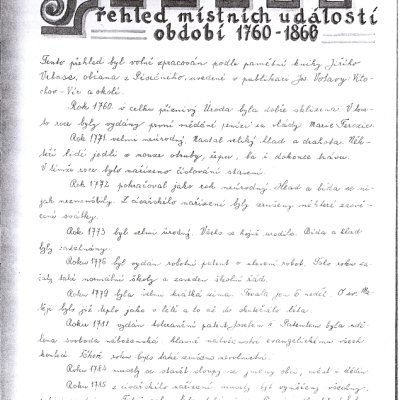 řehled místních událostí
období 1760-1860
Tento přehled byl volně zpracován podle pamětní knihy Jiřího
Volase, občana z Písečného, uvedené v publikaci Jos. Votavy Vito-
chov-Vír a okolí.
Rok 1760 v celku příznivý. Úroda byla dobře sklizena. V tom-
to roce byly vydány první měděné peníze za vlády Marie Terezie.
Rok 1771 velmi neúrodný. Nastal veliký hlad a drahota. Něk-
teří lidé jedli z nouze otruby, řepu, ba i dokonce trávu.
V témže roce bylo nařízeno číslování stavení.
Rok 1772 pokračoval jako rok neúrodný. Hlad a bída se ni-
jak nezmenšily. Z císařského nařízení byly zrušeny některé zasvě-
cené svátky.
Rok 1773 byl velmi úrodný. Všeho se hojně urodilo. Bída a hlad
byly zažehnány.
Rokem 1775 byl vydán robotní patent o zlevnění robot. Toho roku za-
čaly také normální školy a zaveden školní řád.
Roku 1779 byla velmi krátká zima. Trvala jen 6 neděl. O sv. Ma-
těje bylo již teplo jako v létě a to až do skutečného léta.
Roku 1781 vydán toleranční patent Josefem II. Patentem byla udě-
lena svoboda náboženská hlavně náboženství evangelickému všech
konfesí. Téhož roku bylo také zrušeno nevolnictví.
Roku 1783 musely se stavět sloupy se jmény obcí, měst i dědin.
Roku 1785 z císařského nařízení musely být vyměřeny všechny